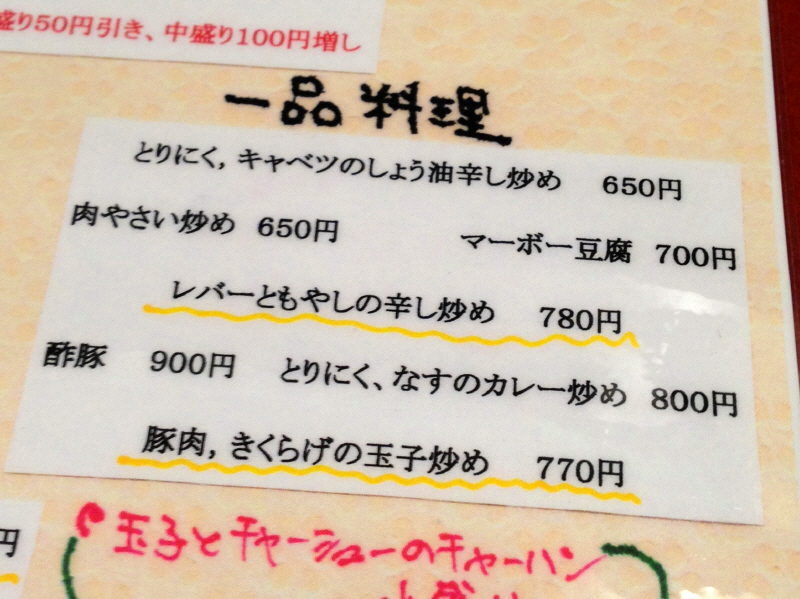 盛り50円引き、中盛り100円増し
一品料理
とりにく,キャベツのしょう油辛し炒め 650円
肉やさい炒め 650円
マーボー豆腐 700円
レバーともやしの辛し炒め 780円
酢豚 900円
とりにく、なすのカレー炒め 800円
豚肉,きくらげの玉子炒め 770円
円
玉子とチャーシューのチャーハン